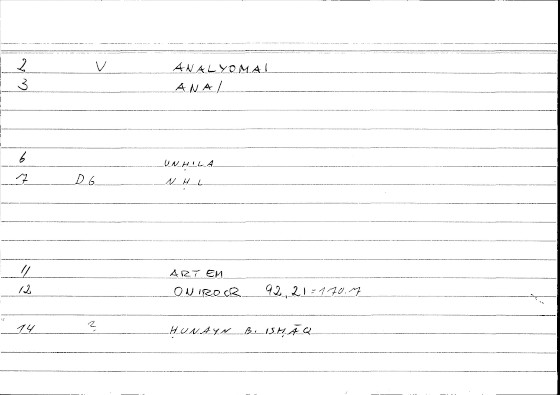 2 V ANALYOMAI
3 ANAI
6 UNḤILA
7 D6 NḤL
11 ARTEM
12 ONIROCR 92,21=170.7
14 ? ḤUNAYN B. ISḤĀQ